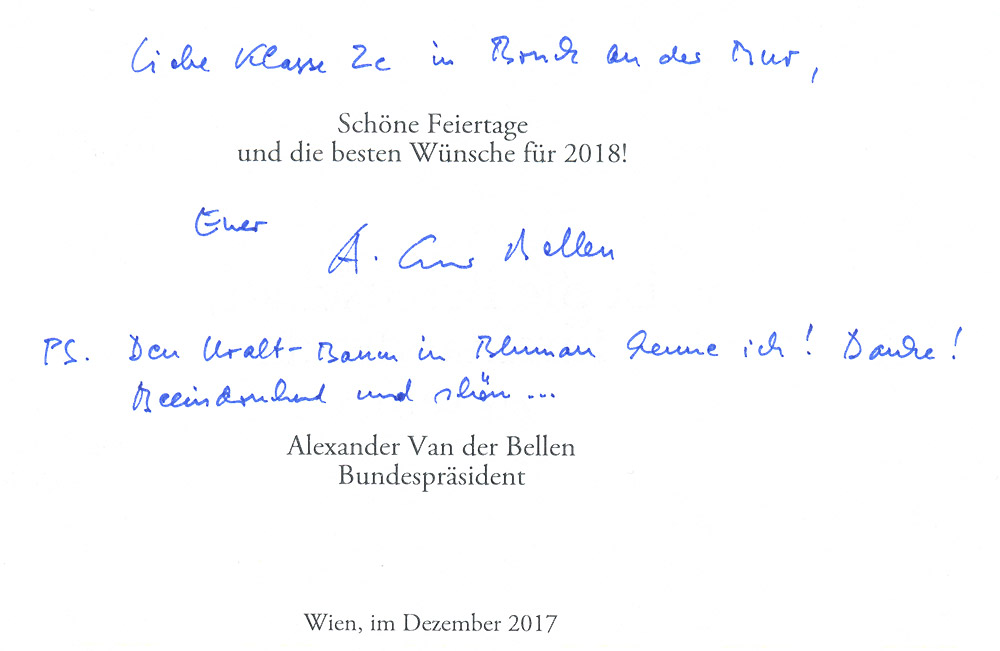 Liebe Klasse 2c in Bruck an der Mur,
Schöne Feiertage
und die besten Wünsche für 2018!
Euer
A. Van d Bellen
PS. Den Uralt-Baum in Blumau kenne ich! Danke!
Beeindruckend und schön...
Alexander Van der Bellen
Bundespräsident
Wien, im Dezember 2017